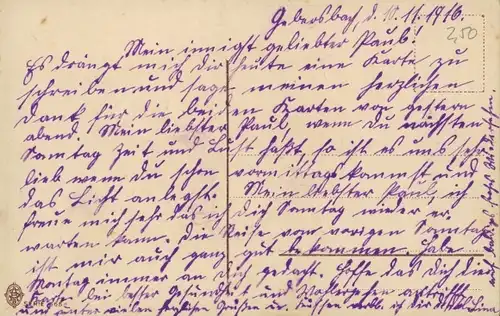 Gebersbach, d. 10.11.1916.
2,50
Mein innigst geliebter Paul!
Es drängt mich dir heute eine Karte zu
schreiben und sage meinen herzlichen
Dank für die beiden Karten von gestern
abend. Mein liebster Paul, wenn du nächsten
Sonntag Zeit und Lust hast, so ist es uns sehr
lieb wenn du schon vormittags kommst und
das Licht anlegst. Mein liebster Paul, ich
freue mich sehr das ich dich Sonntag wieder er-
warten kann. Die Reise vom vorigen Sonntag
ist mir auch ganz gut bekommen. Habe
Montag immer an dich gedacht. Hoffe das dich diese
Karte bei bester Gesundheit und antrifft
und unter vielen herzlichen Grüßen u. Küssen verbl. ich dir